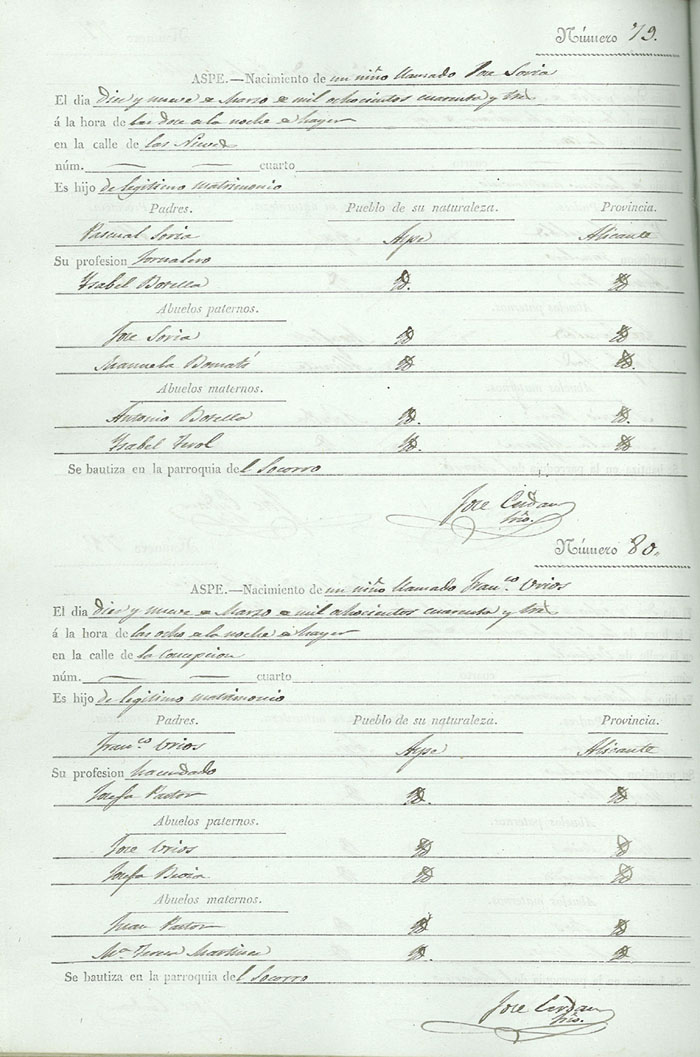 Número 79.
ASPE.—Nacimiento de un niño llamado Jose Soria
El dia diez y nueve de Marzo de mil ochocientos cuarenta y tres
á la hora de las doce de la noche de hayer
en la calle de las Nieves
núm. — — cuarto
Es hijo de legitimo matrimonio
Padres. Pueblo de su naturaleza. Provincia.
Pascual Soria Aspe Alicante
Su profesion Jornalero
Ysabel Botella id. id
Abuelos paternos.
Jose Soria id id
Manuela id id.
Abuelos maternos.
Antonio Botella id. id.
Ysabel Terol id. id
Se bautiza en la parroquia del Socorro
Jose Cerdan
Srio.
Número 80.
ASPE.—Nacimiento de un niño llamado Fran.co Urios
El dia diez y nueve de Marzo de mil ochocientos cuarenta y tres
á la hora de las ocho de la noche de hayer
en la calle de la Concepcion
núm. — — cuarto
Es hijo de legitimo matrimonio
Padres. Pueblo de su naturaleza. Provincia.
Fran.co Urios Aspe Alicante
Su profesion hacendado
Josefa Pastor id. id
Abuelos paternos.
Jose Urios id id
Josefa id id
Abuelos maternos.
Juan Pastor id id
M.a Teresa Martinez id. id
Se bautiza en la parroquia del Socorro
Jose Cerdan
Srio.